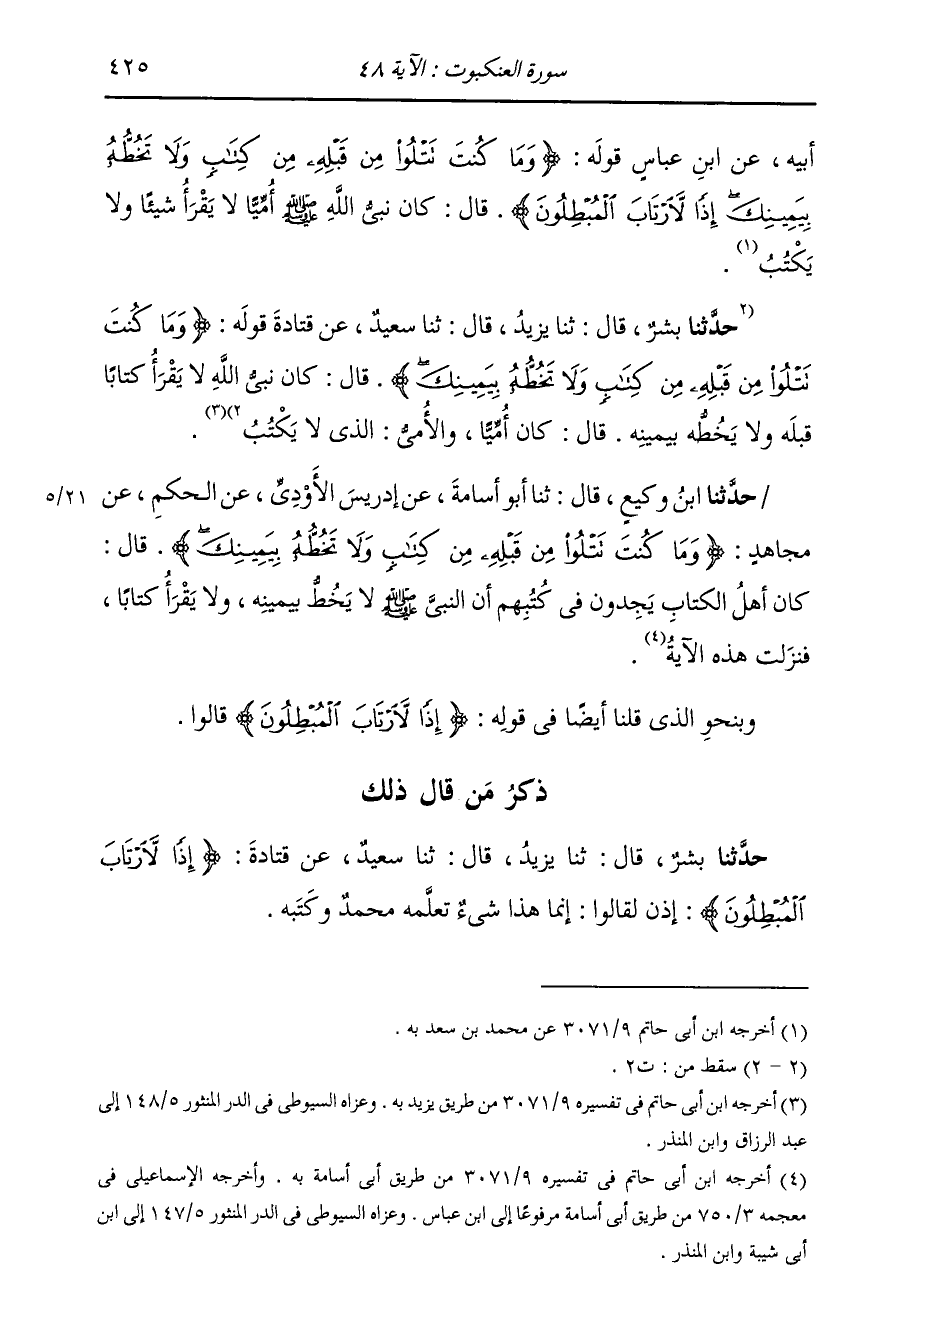 سورة العنكبوت : الآية ٤٨ ٤٢٥
أبيه ، عن ابنِ عباسٍ قولَه : ﴿ وَمَا كُنتَ نَتْلُوا۟ مِن قَبْلِهِۦ مِن كِتَٰبٍ وَلَا تَخُطُّهُۥ
بِيَمِينِكَ ۖ إِذًا لَّٱرْتَابَ ٱلْمُبْطِلُونَ ﴾ . قال : كان نبىُّ اللَّهِ ﷺ أُمِّيًّا لا يَقْرَأُ شيئًا ولا
يَكْتُبُ (١) .
(٢ حدَّثنا بشرٌ ، قال : ثنا يزيدُ ، قال : ثنا سعيدٌ ، عن قتادةَ قولَه : ﴿ وَمَا كُنتَ
نَتْلُوا۟ مِن قَبْلِهِۦ مِن كِتَٰبٍ وَلَا تَخُطُّهُۥ بِيَمِينِكَ ۖ ﴾ . قال : كان نبىُّ اللَّهِ لا يَقْرَأُ كتابًا
قبلَه ولا يَخُطُّه بيمينِه . قال : كان أُمِّيًّا ، والأُمىُّ : الذى لا يَكْتُبُ ٢)(٣) .
/ حدَّثنا ابنُ وكيعٍ ، قال : ثنا أبو أسامةَ ، عن إدريسَ الأَوْدِىِّ ، عن الحكمِ ، عن ٥/٢١
مجاهدٍ : ﴿ وَمَا كُنتَ نَتْلُوا۟ مِن قَبْلِهِۦ مِن كِتَٰبٍ وَلَا تَخُطُّهُۥ بِيَمِينِكَ ۖ ﴾ . قال :
كان أهلُ الكتابِ يَجدون فى كُتُبِهم أن النبىَّ ﷺ لا يَخُطُّ بيمينِه ، ولا يَقْرَأُ كتابًا ،
فنزَلت هذه الآيةُ (٤) .
وبنحوِ الذى قلنا أيضًا فى قولِه : ﴿ إِذًا لَّٱرْتَابَ ٱلْمُبْطِلُونَ ﴾ قالوا .
ذكرُ مَن قال ذلك
حدَّثنا بشرٌ ، قال : ثنا يزيدُ ، قال : ثنا سعيدٌ ، عن قتادةَ : ﴿ إِذًا لَّٱرْتَابَ
ٱلْمُبْطِلُونَ ﴾ : إذن لقالوا : إنما هذا شىءٌ تعلَّمه محمدٌ وكتَبه .
(١) أخرجه ابن أبى حاتم ٣٠٧١/٩ عن محمد بن سعد به .
(٢ - ٢) سقط من : ت٢ .
(٣) أخرجه ابن أبى حاتم فى تفسيره ٣٠٧١/٩ من طريق يزيد به . وعزاه السيوطى فى الدر المنثور ١٤٨/٥ إلى
عبد الرزاق وابن المنذر .
(٤) أخرجه ابن أبى حاتم فى تفسيره ٣٠٧١/٩ من طريق أبى أسامة به . وأخرجه الإسماعيلى فى
معجمه ٧٥٠/٣ من طريق أبى أسامة مرفوعًا إلى ابن عباس . وعزاه السيوطى فى الدر المنثور ١٤٧/٥ إلى ابن
أبى شيبة وابن المنذر .